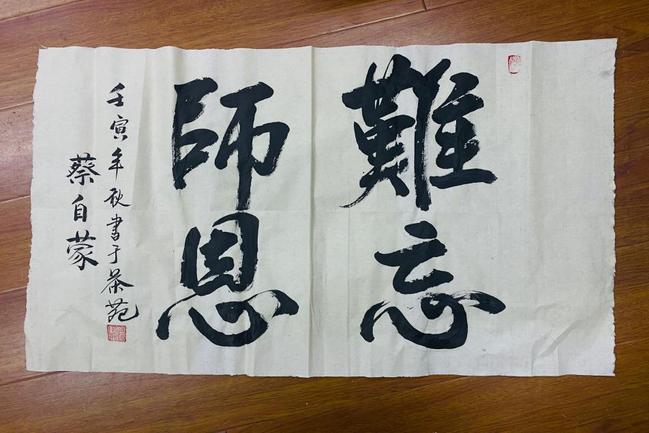 難忘
師恩
壬寅年秋書于茶苑
蔡自蒙